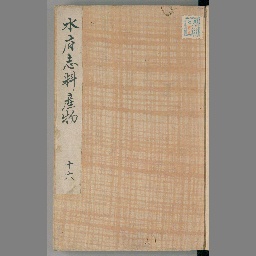 水府志料産物
十六